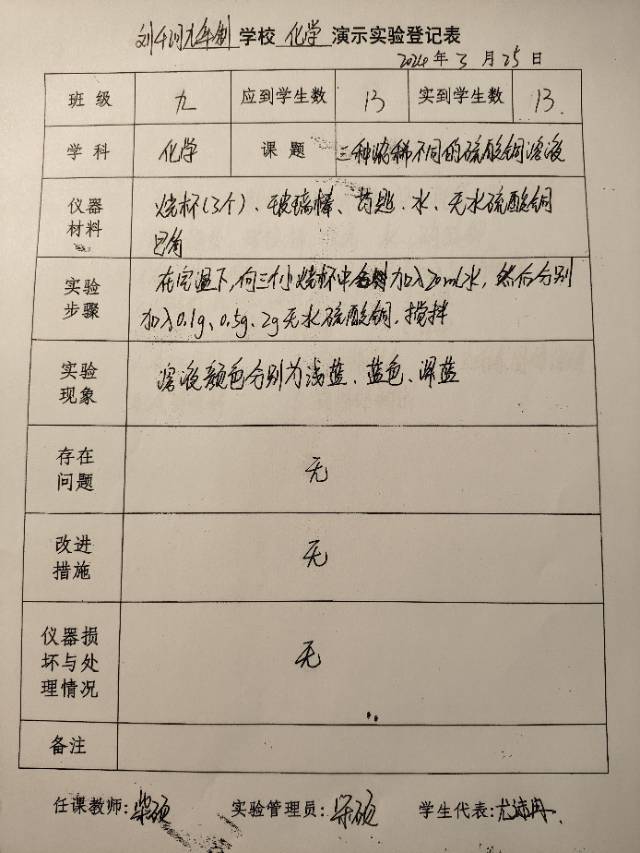 刘千河九年制学校 化学 演示实验登记表
2024年3月25日
班级 九 应到学生数 13 实到学生数 13
学科 化学 课题 三种浓稀不同的硫酸铜溶液
仪器 烧杯(3个)、玻璃棒、药匙、水、无水硫酸铜
材料
实验 在室温下,向三个小烧杯中各加入20mL水,然后分别
步骤 加入0.1g、0.5g、2g无水硫酸铜,搅拌
实验 溶液颜色分别为浅蓝、蓝色、深蓝
现象
存在
问题 无
改进
措施 无
仪器损
坏与处 无
理情况
备注
任课教师: 实验管理员: 学生代表: